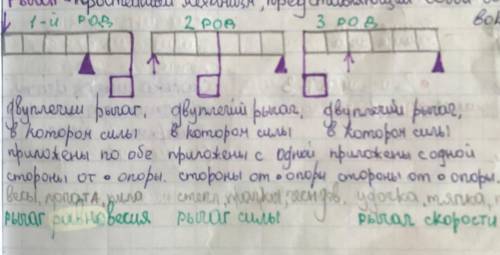 Рычаг - простейший механизм, представляющий собой
1-й род 2 род 3 род
двуплечий рычаг, двуплечий рычаг, двуплечий рычаг,
в котором силы в котором силы в котором силы
приложены по обе приложены с одной приложены с одной
стороны от • опоры. стороны от • опоры стороны от • опоры.
весы, лопата, удочка, тяпка,
рычаг равновесия рычаг силы рычаг скорости